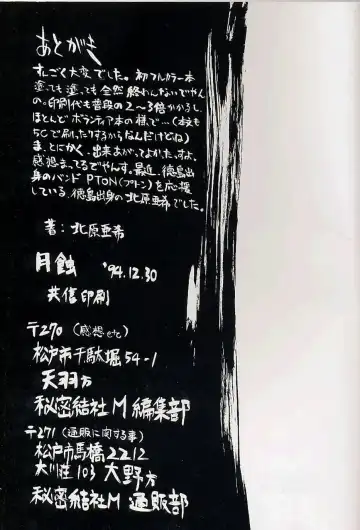 あとがき
すんごく大変でした。初フルカラー本
塗っても塗っても全然終わんないでやん
の。印刷代も普段の2～3倍かかるし、
ほとんどボランティア本の様で…(本文も
5Cで刷ったりするからなんだけどね)
ま、とにかく、出来あがってよかったすよ。
感想まってるでやんす。最近、徳島出
身のバンド PTON(プトン)を応援
している、徳島出身の北原亜希でした。
著：北原亜希
月蝕 '94.12.30
共信印刷
〒270 (感想etc)
松戸市千駄堀54-1
天羽方
秘密結社M 編集部
〒271 (通販に関する事)
松戸市馬橋2212
大川荘103 大野方
秘密結社M 通販部